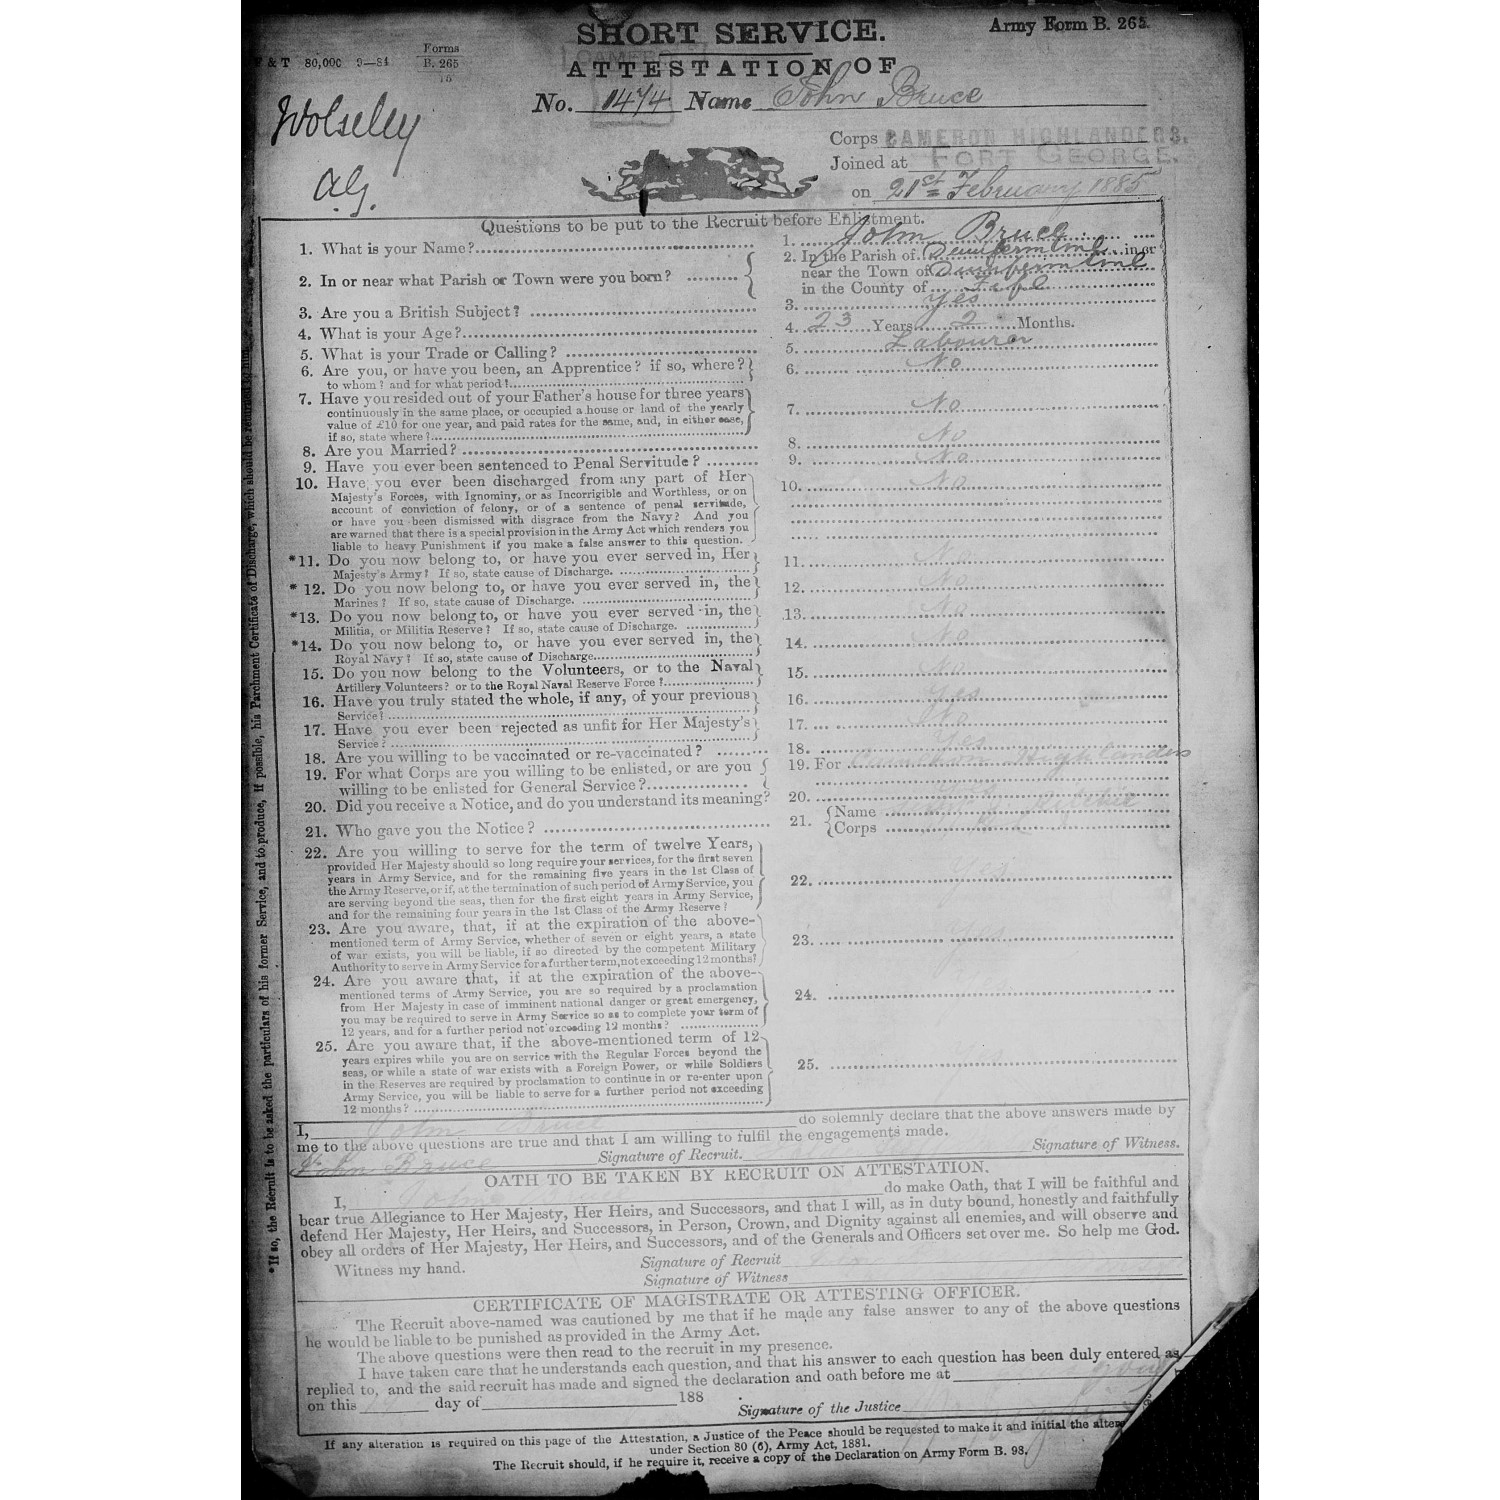 SHORT SERVICE.
Army Form B. 265.
& T 80,000 9—84
Forms
B. 265
ATTESTATION OF
No. 1474 Name John Bruce
Wolseley
A.G.
Corps CAMERON HIGHLANDERS.
Joined at FORT GEORGE.
on 21st February 1885
Questions to be put to the Recruit before Enlistment.
1. What is your Name? 1. John Bruce
2. In or near what Parish or Town were you born? 2. In the Parish of Dunfermline in or
near the Town of Dunfermline
in the County of Fife
3. Are you a British Subject? 3. Yes
4. What is your Age? 4. 23 Years 2 Months.
5. What is your Trade or Calling? 5. Labourer
6. Are you, or have you been, an Apprentice? if so, where? 6. No
to whom? and for what period?
7. Have you resided out of your Father's house for three years
continuously in the same place, or occupied a house or land of the yearly 7. No
value of £10 for one year, and paid rates for the same, and, in either case,
if so, state where?
8. Are you Married? 8. No
9. Have you ever been sentenced to Penal Servitude? 9. No
10. Have you ever been discharged from any part of Her 10. No
Majesty's Forces, with Ignominy, or as Incorrigible and Worthless, or on
account of conviction of felony, or of a sentence of penal servitude,
or have you been dismissed with disgrace from the Navy? And you
are warned that there is a special provision in the Army Act which renders you
liable to heavy Punishment if you make a false answer to this question.
*11. Do you now belong to, or have you ever served in, Her 11. No
Majesty's Army? If so, state cause of Discharge.
*12. Do you now belong to, or have you ever served in, the 12. No
Marines? If so, state cause of Discharge.
*13. Do you now belong to, or have you ever served in, the 13. No
Militia, or Militia Reserve? If so, state cause of Discharge.
*14. Do you now belong to, or have you ever served in, the 14. No
Royal Navy? If so, state cause of Discharge.
15. Do you now belong to the Volunteers, or to the Naval 15. No
Artillery Volunteers? or to the Royal Naval Reserve Force?
16. Have you truly stated the whole, if any, of your previous 16. Yes
Service?
17. Have you ever been rejected as unfit for Her Majesty's 17. No
Service?
18. Are you willing to be vaccinated or re-vaccinated? 18. Yes
19. For what Corps are you willing to be enlisted, or are you 19. For Cameron Highlanders
willing to be enlisted for General Service?
20. Did you receive a Notice, and do you understand its meaning? 20. Yes
21. Who gave you the Notice? 21. Name Ritchie
Corps
22. Are you willing to serve for the term of twelve Years,
provided Her Majesty should so long require your services, for the first seven
years in Army Service, and for the remaining five years in the 1st Class of
the Army Reserve, or if, at the termination of such period of Army Service, you 22. Yes
are serving beyond the seas, then for the first eight years in Army Service,
and for the remaining four years in the 1st Class of the Army Reserve?
23. Are you aware, that, if at the expiration of the above-
mentioned term of Army Service, whether of seven or eight years, a state 23. Yes
of war exists, you will be liable, if so directed by the competent Military
Authority to serve in Army Service for a further term, not exceeding 12 months?
24. Are you aware that, if at the expiration of the above-
mentioned terms of Army Service, you are so required by a proclamation 24. Yes
from Her Majesty in case of imminent national danger or great emergency,
you may be required to serve in Army Service so as to complete your term of
12 years, and for a further period not exceeding 12 months?
25. Are you aware that, if the above-mentioned term of 12
years expires while you are on service with the Regular Forces beyond the 25.
seas, or while a state of war exists with a Foreign Power, or while Soldiers
in the Reserves are required by proclamation to continue in or re-enter upon
Army Service, you will be liable to serve for a further period not exceeding
12 months?
I, John Bruce do solemnly declare that the above answers made by
me to the above questions are true and that I am willing to fulfil the engagements made.
John Bruce Signature of Recruit. Signature of Witness.
OATH TO BE TAKEN BY RECRUIT ON ATTESTATION.
I, John Bruce do make Oath, that I will be faithful and
bear true Allegiance to Her Majesty, Her Heirs, and Successors, and that I will, as in duty bound, honestly and faithfully
defend Her Majesty, Her Heirs, and Successors, in Person, Crown, and Dignity against all enemies, and will observe and
obey all orders of Her Majesty, Her Heirs, and Successors, and of the Generals and Officers set over me. So help me God.
Witness my hand. Signature of Recruit
Signature of Witness
CERTIFICATE OF MAGISTRATE OR ATTESTING OFFICER.
The Recruit above-named was cautioned by me that if he made any false answer to any of the above questions
he would be liable to be punished as provided in the Army Act.
The above questions were then read to the recruit in my presence.
I have taken care that he understands each question, and that his answer to each question has been duly entered as
replied to, and the said recruit has made and signed the declaration and oath before me at
on this day of 188
Signature of the Justice
If any alteration is required on this page of the Attestation, a Justice of the Peace should be requested to make it and initial the
under Section 80 (6), Army Act, 1881.
The Recruit should, if he require it, receive a copy of the Declaration on Army Form B. 98.
*If so, the Recruit is to be asked the particulars of his former Service, and to produce, if possible, his Parchment Certificate of Discharge, which should be returned to him